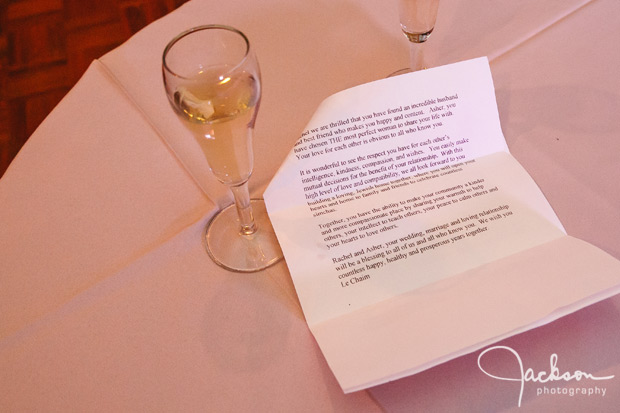 we are thrilled that you have found an incredible husband
and best friend who makes you happy and content. Asher, you
have chosen THE most perfect woman to share your life with
Your love for each other is obvious to all who know you.
It is wonderful to see the respect you have for each other's
intelligence, kindness, compassion, and wishes. You easily make
mutual decisions for the benefit of your relationship. With this
high level of love and compatibility, we all look forward to you
building a loving, Jewish home together, where you will open your
hearts and home to family and friends to celebrate countless
simchas.
Together, you have the ability to make your community a kinder
and more compassionate place by sharing your warmth to help
others, your intellect to teach others, your peace to calm others and
your hearts to love others.
Rachel and Asher, your wedding, marriage and loving relationship
will be a blessing to all of us and all who know you. We wish you
countless happy, healthy and prosperous years together
Le Chaim
Jackson
photography